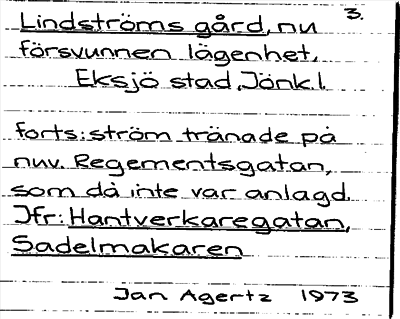 3.
Lindströms gård, nu
försvunnen lägenhet.
Eksjö stad, Jönk.l.
forts: ström tränade på
nuv. Regementsgatan,
som då inte var anlagd.
Jfr: Hantverkaregatan,
Sadelmakaren
Jan Agertz 1973